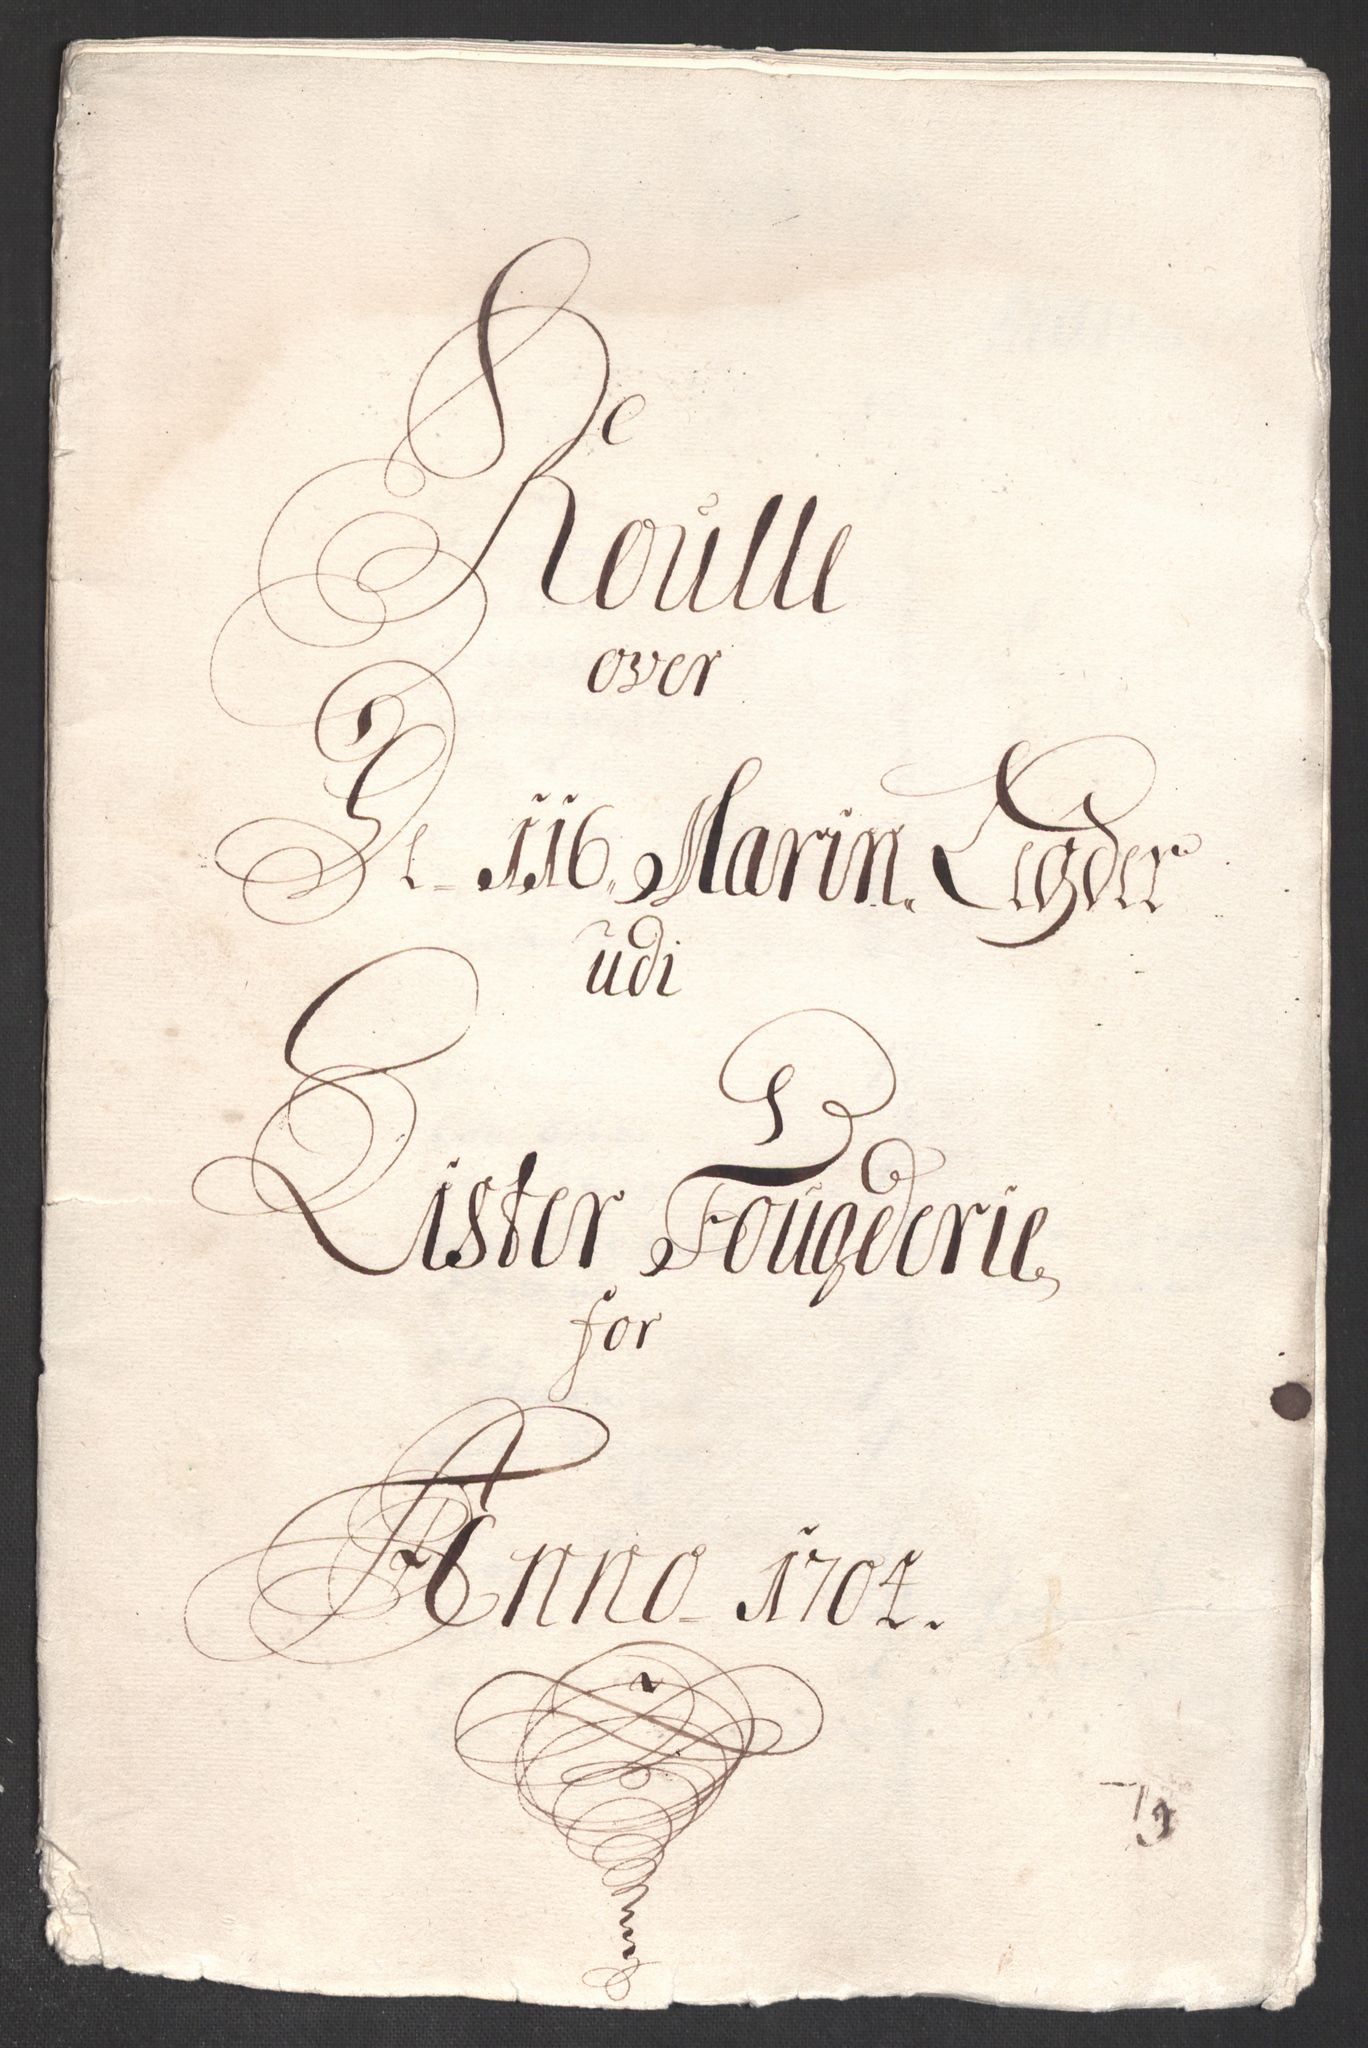 Roulle
over
De 116. Marin. Legder
udi
Lister Fougderie
for
Anno 1704.